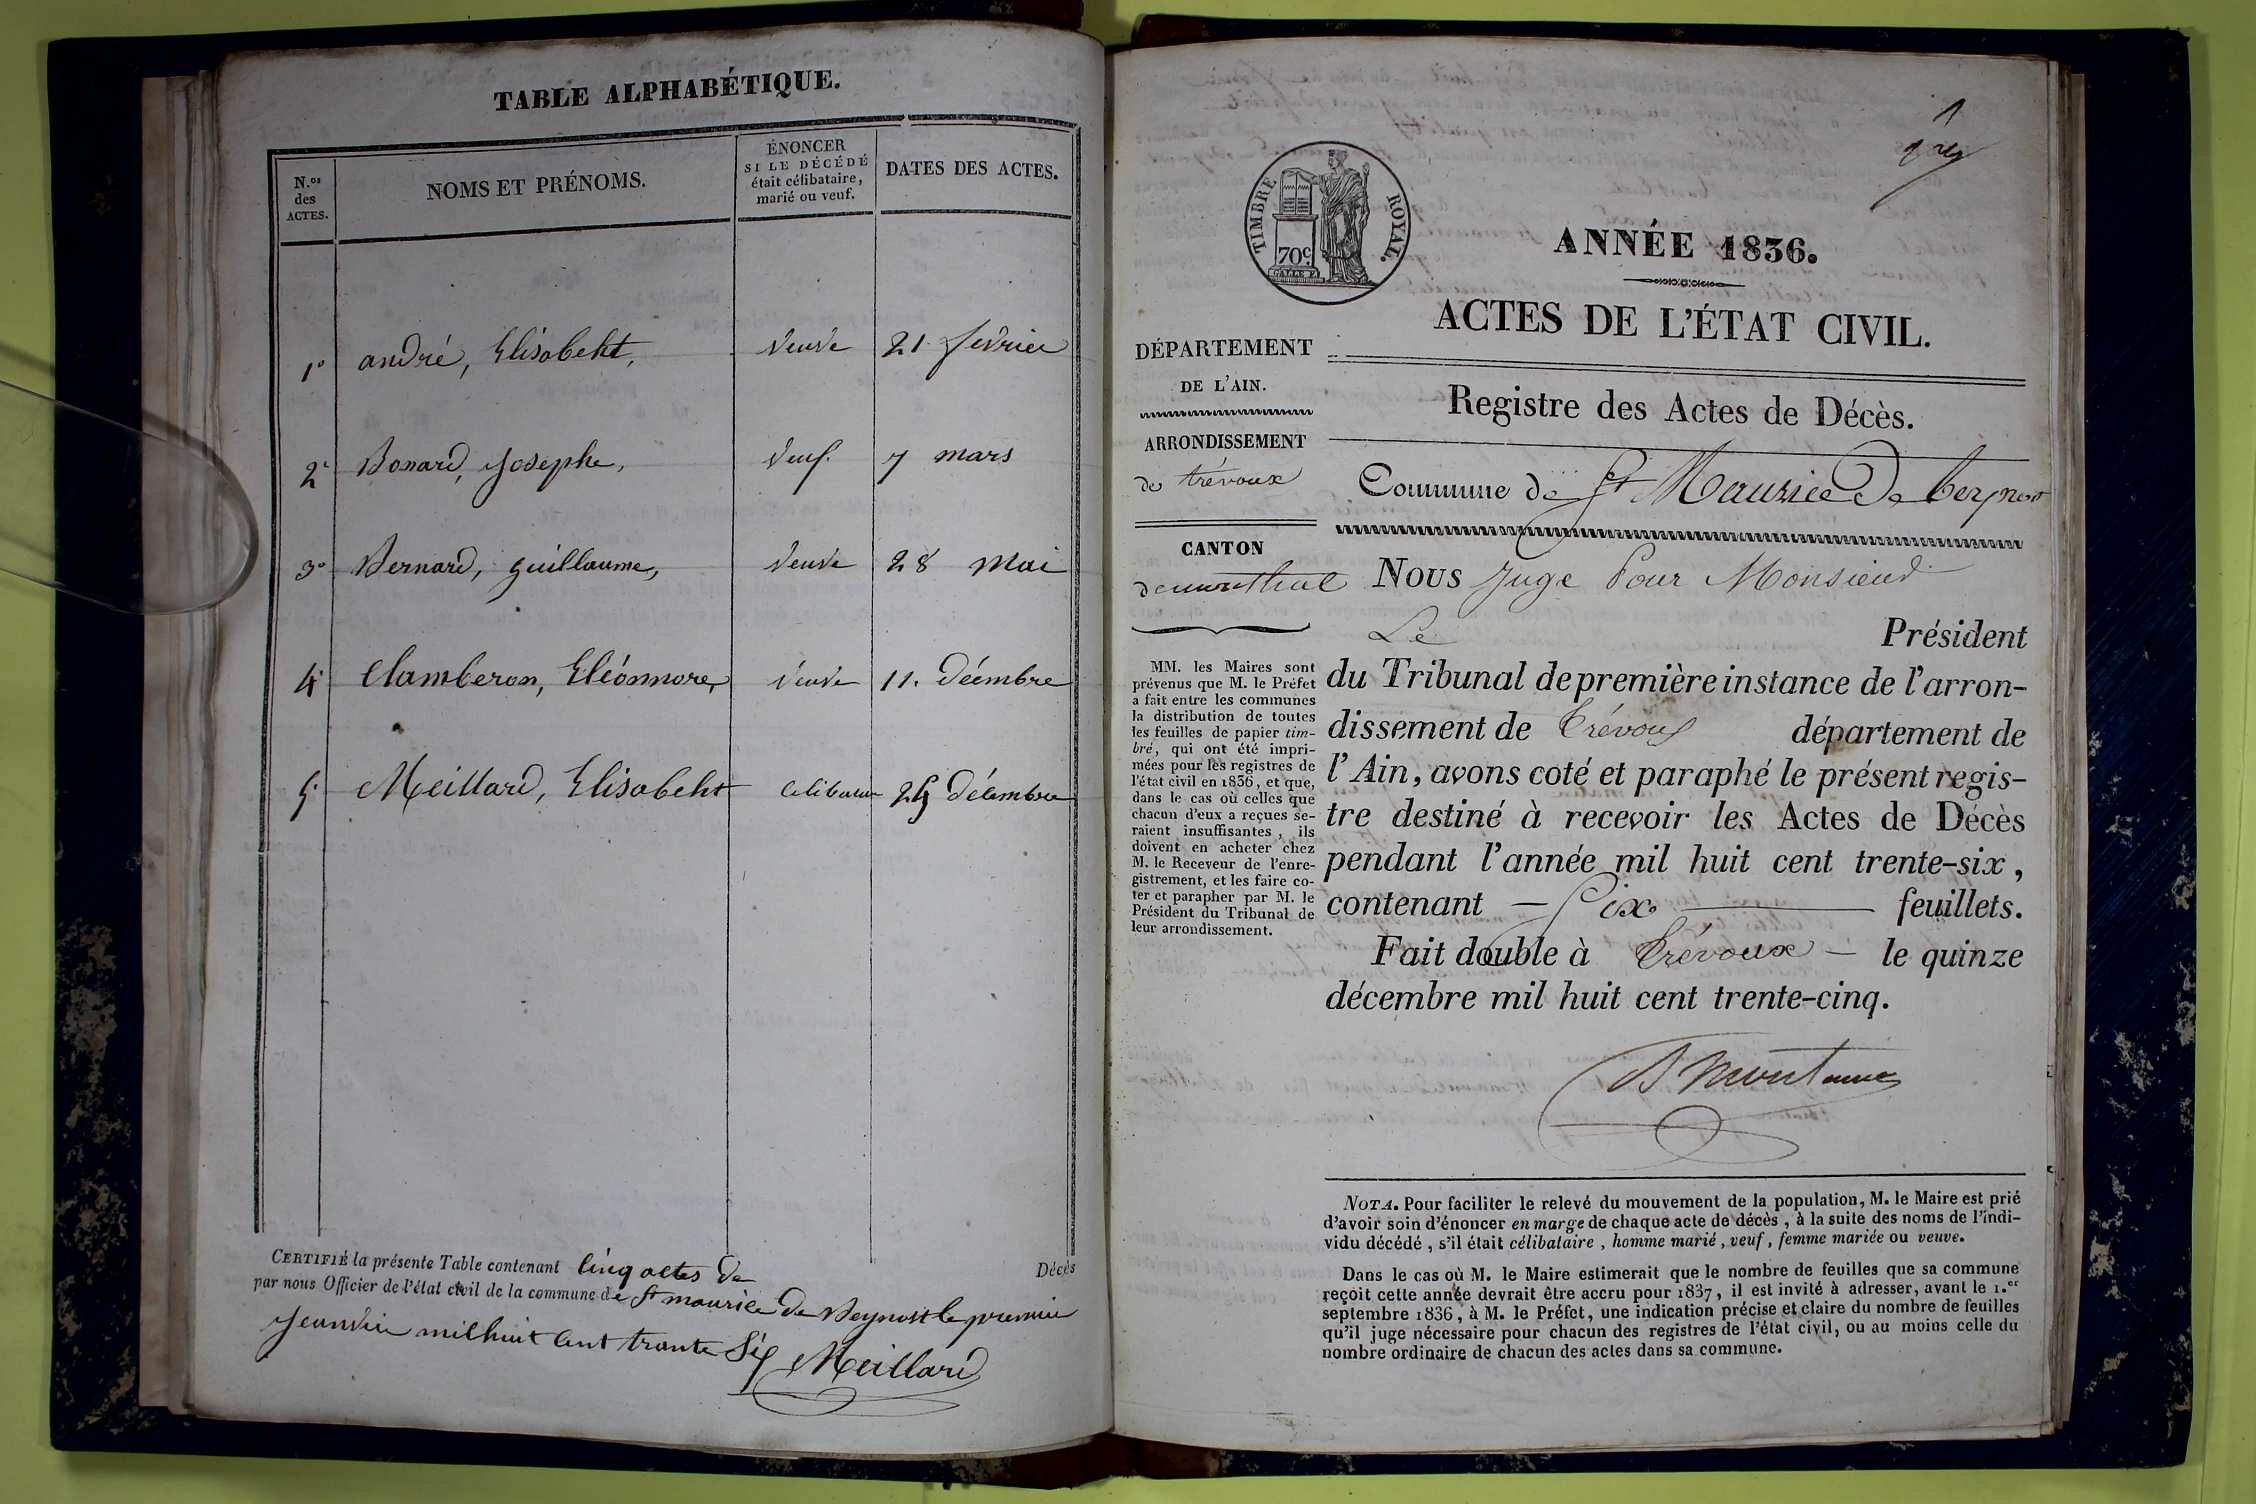 TABLE ALPHABÉTIQUE.
N.os des ACTES.
NOMS ET PRÉNOMS.
ÉNONCER SI LE DÉCÉDÉ était célibataire, marié ou veuf.
DATES DES ACTES.
1° andré, Elisabeht, veuve 21 fevrier
2° Bonard, Josephe, veuf. 7 mars
3° Bernard, guillaume, veuve 28 mai
4° Clamberon, Eléonnore, veuve 11. Déembre
5° Meillard, Elisabeht 25 décembre
CERTIFIÉ la présente Table contenant Cinq actes de Décès
par nous Officier de l'état civil de la commune de St maurice de Beynost le premier
Jeanvier mil huit Cent trante Six Meillard
1
TIMBRE ROYAL.
70c
ANNÉE 1836.
ACTES DE L'ÉTAT CIVIL.
Registre des Actes de Décès.
Commune de St Maurice De beynost
DÉPARTEMENT
DE L'AIN.
ARRONDISSEMENT
de trévoux
CANTON
de montluel
MM. les Maires sont
prévenus que M. le Préfet
a fait entre les communes
la distribution de toutes
les feuilles de papier tim-
bré, qui ont été impri-
mées pour les registres de
l'état civil en 1836, et que,
dans le cas où celles que
chacun d'eux a reçues se-
raient insuffisantes, ils
doivent en acheter chez
M. le Receveur de l'enre-
gistrement, et les faire co-
ter et parapher par M. le
Président du Tribunal de
leur arrondissement.
NOUS Juge Pour Monsieur
Le Président
du Tribunal de première instance de l'arron-
dissement de Trévoux département de
l'Ain, avons coté et paraphé le présent regis-
tre destiné à recevoir les Actes de Décès
pendant l'année mil huit cent trente-six,
contenant Six feuillets.
Fait double à Trévoux le quinze
décembre mil huit cent trente-cinq.
NOTA. Pour faciliter le relevé du mouvement de la population, M. le Maire est prié
d'avoir soin d'énoncer en marge de chaque acte de décès, à la suite des noms de l'indi-
vidu décédé, s'il était célibataire, homme marié, veuf, femme mariée ou veuve.
Dans le cas où M. le Maire estimerait que le nombre de feuilles que sa commune
reçoit cette année devrait être accru pour 1837, il est invité à adresser, avant le 1.er
septembre 1836, à M. le Préfet, une indication précise et claire du nombre de feuilles
qu'il juge nécessaire pour chacun des registres de l'état civil, ou au moins celle du
nombre ordinaire de chacun des actes dans sa commune.